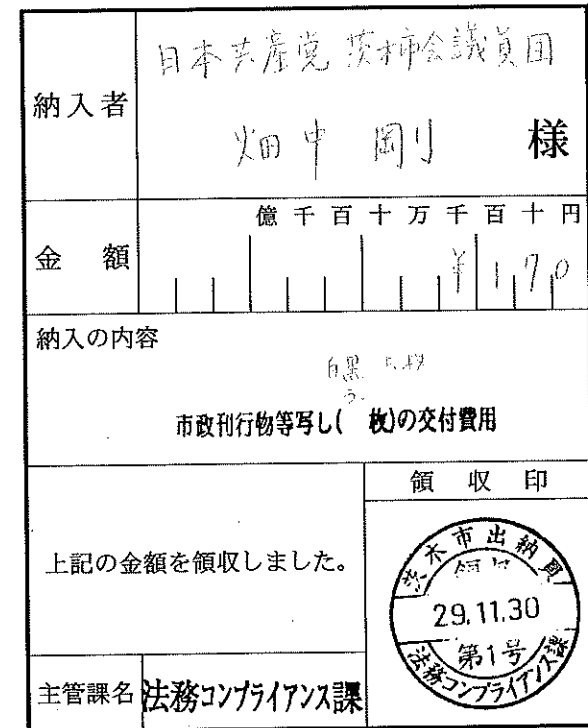 納入者
日本共産党茨木市会議員団
畑中 剛 様
億千百十万千百十円
金額
¥170
納入の内容
白黒
市政刊行物等写し( 枚)の交付費用
上記の金額を領収しました。
領収印
茨木市出納員
領収
29.11.30
第1号
法務コンプライアンス課
主管課名 法務コンプライアンス課